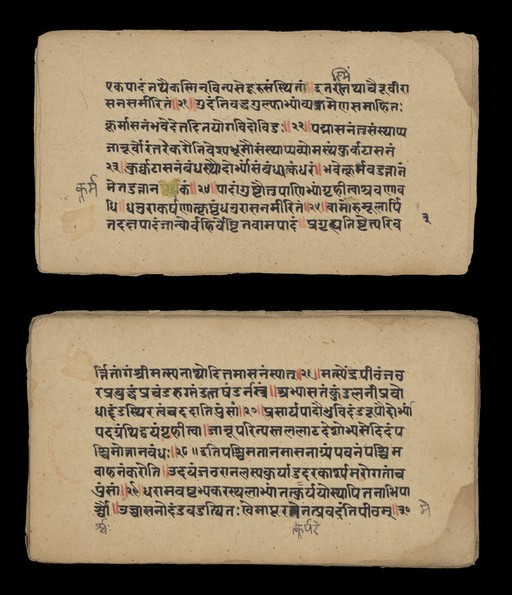 स्मिं
एकपादंतथैकस्मिन्विन्यसेदूरुसंस्थितां॥इतरंतथाचैववीरा
सनसमीरितं॥२१॥गुदंनिबद्धगुल्फाभ्यांव्यत्क्रमेणसमाहितः
कूर्मासनंभवेदेतदितियोगविदोविदुः॥२२॥पद्मासनंतुसंस्थाप्य
जानूर्वोरंतरेकरौनिवेश्यभूमौसंस्थाप्यव्योमस्थंकुर्कुटासनं
२३॥कुर्कुटासनबंधस्थोदोर्भ्यांसंबंध्यकंधरां॥भवेत्कूर्मवदुत्तानं
कूर्म
मेतदुत्तान कं॥२४॥पादांगुष्ठौतुपाणिभ्यांगृहीत्वाश्रवणाव
धि॥धनुराकर्षणात्कृष्टंधनुरासनमीरितं॥२५॥वामोरुमूलार्पि
३
तदक्षपादंजान्वोर्बहिर्वेष्टितवामपादं॥प्रगृह्यतिष्ठेत्परिव
र्त्तितांगंश्रीमत्स्यनाथोदितमासनंस्यात्॥२६॥मत्स्येंद्रपीठंजठ
रप्रबुद्धंप्रचंडरुग्मंडलखंडनास्त्रं॥अभ्यासतंकुंडलनीप्रबो
धंदंडस्थिरत्वंचददातिपुंसां॥२७॥प्रसार्यपादौभुविदंडरूपौदोर्भ्यां
पदग्रंथिद्वयंगृहीत्वा॥जानूपरिन्यस्तललाटदेशोभ्यसेदिदंप
श्चिमोत्तानबंधः॥२८॥इतिपश्चिमतानमासनाग्र्यंपवनंपश्चिम
वाहनंकरोति॥उदयंजठरानलस्यकुर्यादुदरकार्श्यमरोगतांच
पुंसां॥२९॥धरामवष्टभ्यकरस्थलाभ्यांतत्कूर्परस्थापितनाभिपा
र्श्वौ॥उच्चासनोदंडवदुत्थितःखेमायूरमेतत्प्रवदंतिपीठम्॥३०
मे
र्श्वः
कूर्परे